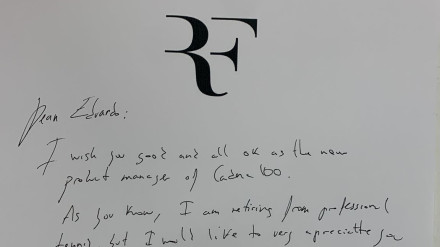 RF
Dear Eduardo:
I wish you good and all ok as the new
product manager of Cadena 100.
As you know, I am retiring from professional
tennis but I would like to very appreciate you